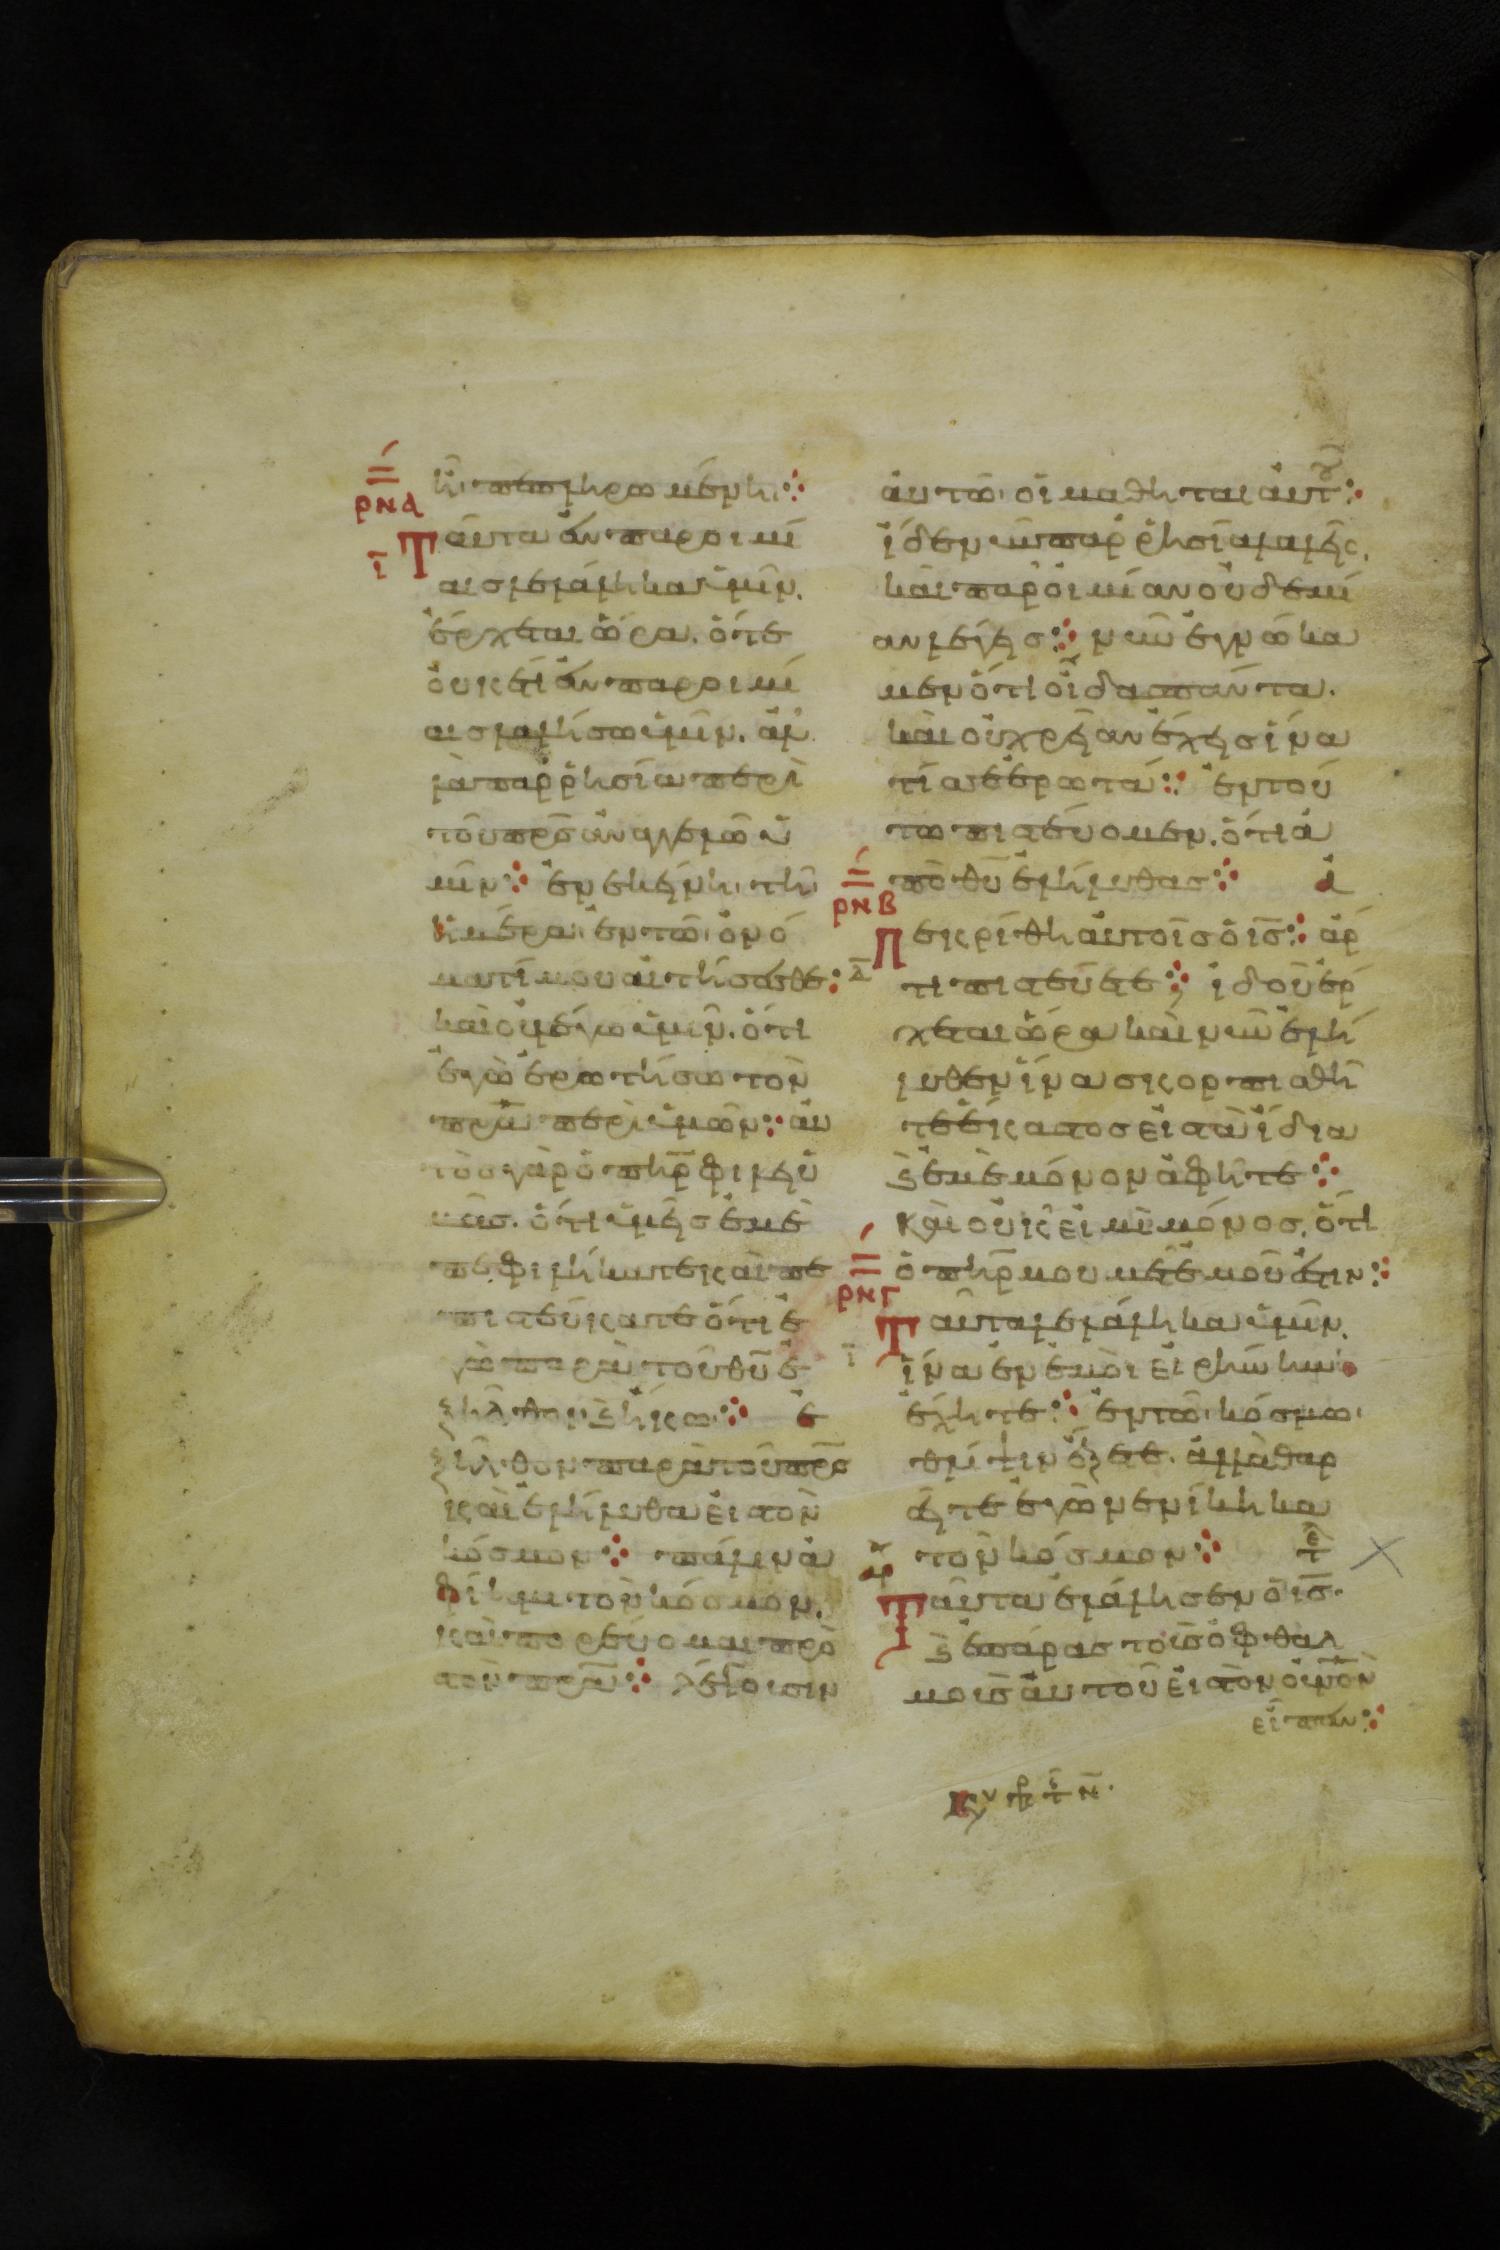 ρνα
ῆ πεπληρωμένη
ι Ταῦτα ἐν παροιμί
αις λελάληκα ὑμῖν.
ἔρχεται ὥρα. ὅτε
οὐκέτι ἐν παροιμί
αις λαλήσω ὑμῖν. ἀλ
λὰ παρρησία περὶ
τοῦ πρσ ἀναγγελῶ ὑ
μῖν ἐν ἐκείνη τῆ
ἡμέρα ἐν τῶ ὀνό
ματί μου αἰτήσασθε
καὶ οὐ λέγω ὑμῖν. ὅτι
ἐγὼ ἐρωτήσω τὸν
πρα περὶ ὑμῶν αὐ
τὸς γὰρ ὁ πηρ φιλεῖ ὑ
μᾶς. ὅτι ὑμεῖς ἐμὲ
πεφιλήκατε καὶ πε
πιστεύκατε ὅτι ἐ
γὼ παρὰ τοῦ θυ ἐ
ξῆλθον ϗ ἥκω ἐ
ξῆλθον παρὰ τοῦ πρσ
καὶ ἐλήλυθα εἰς τὸν
κόσμον πάλιν ἀ
φίημι τὸν κόσμον.
καὶ πορεύομαι πρὸ
στὸν πρα λέγουσιν
αὐτῶ οἱ μαθηταὶ αὐτοῦ
ἴδε νῦν παρρησία λαλεῖς.
καὶ παροιμίαν οὐδεμί
αν λέγεις νῦν ἐγνώκα
μεν ὅτι οἶδας πάντα.
καὶ οὐ χρείαν ἔχεις ἵνα
τίς σε ἐρωτᾶ ἐν τού
τω πιστεύομεν. ὅτι ἀ
πὸ θυ ἐλήλυθας
ρνβ
δ Ἀπεκρίθη αὐτοῖς ὁ ισ ἄρ
τι πιστεύετε ἰδοὺ ἔρ
χεται ὥρα καὶ νῦν ἐλή
λυθεν ἵνα σκορπισθῆ
τε ἕκαστος εἰς τὰ ἴδια
ϗ ἐμὲ μόνον ἀφῆτε
Καὶ οὐκ εἰμὶ μόνος. ὅτι
ὁ πηρ μου μετ' ἐμοῦ ἐστιν
ρνγ
ι Ταῦτα λελάληκα ὑμῖν.
ἵνα ἐν ἐμοὶ εἰρήνην
ἔχητε ἐν τῶ κόσμω
θλίψιν ἕξετε. ἀλλὰ θαρ
σεῖτε ἐγὼ νενίκηκα
τὸν κόσμον τε
Ταῦτα ἐλάλησεν ὁ ισ.
ϗ ἐπάρας τοὺς ὀφθαλ
μοὺς αὐτοῦ εἰς τὸν οὐνον
εἶπεν